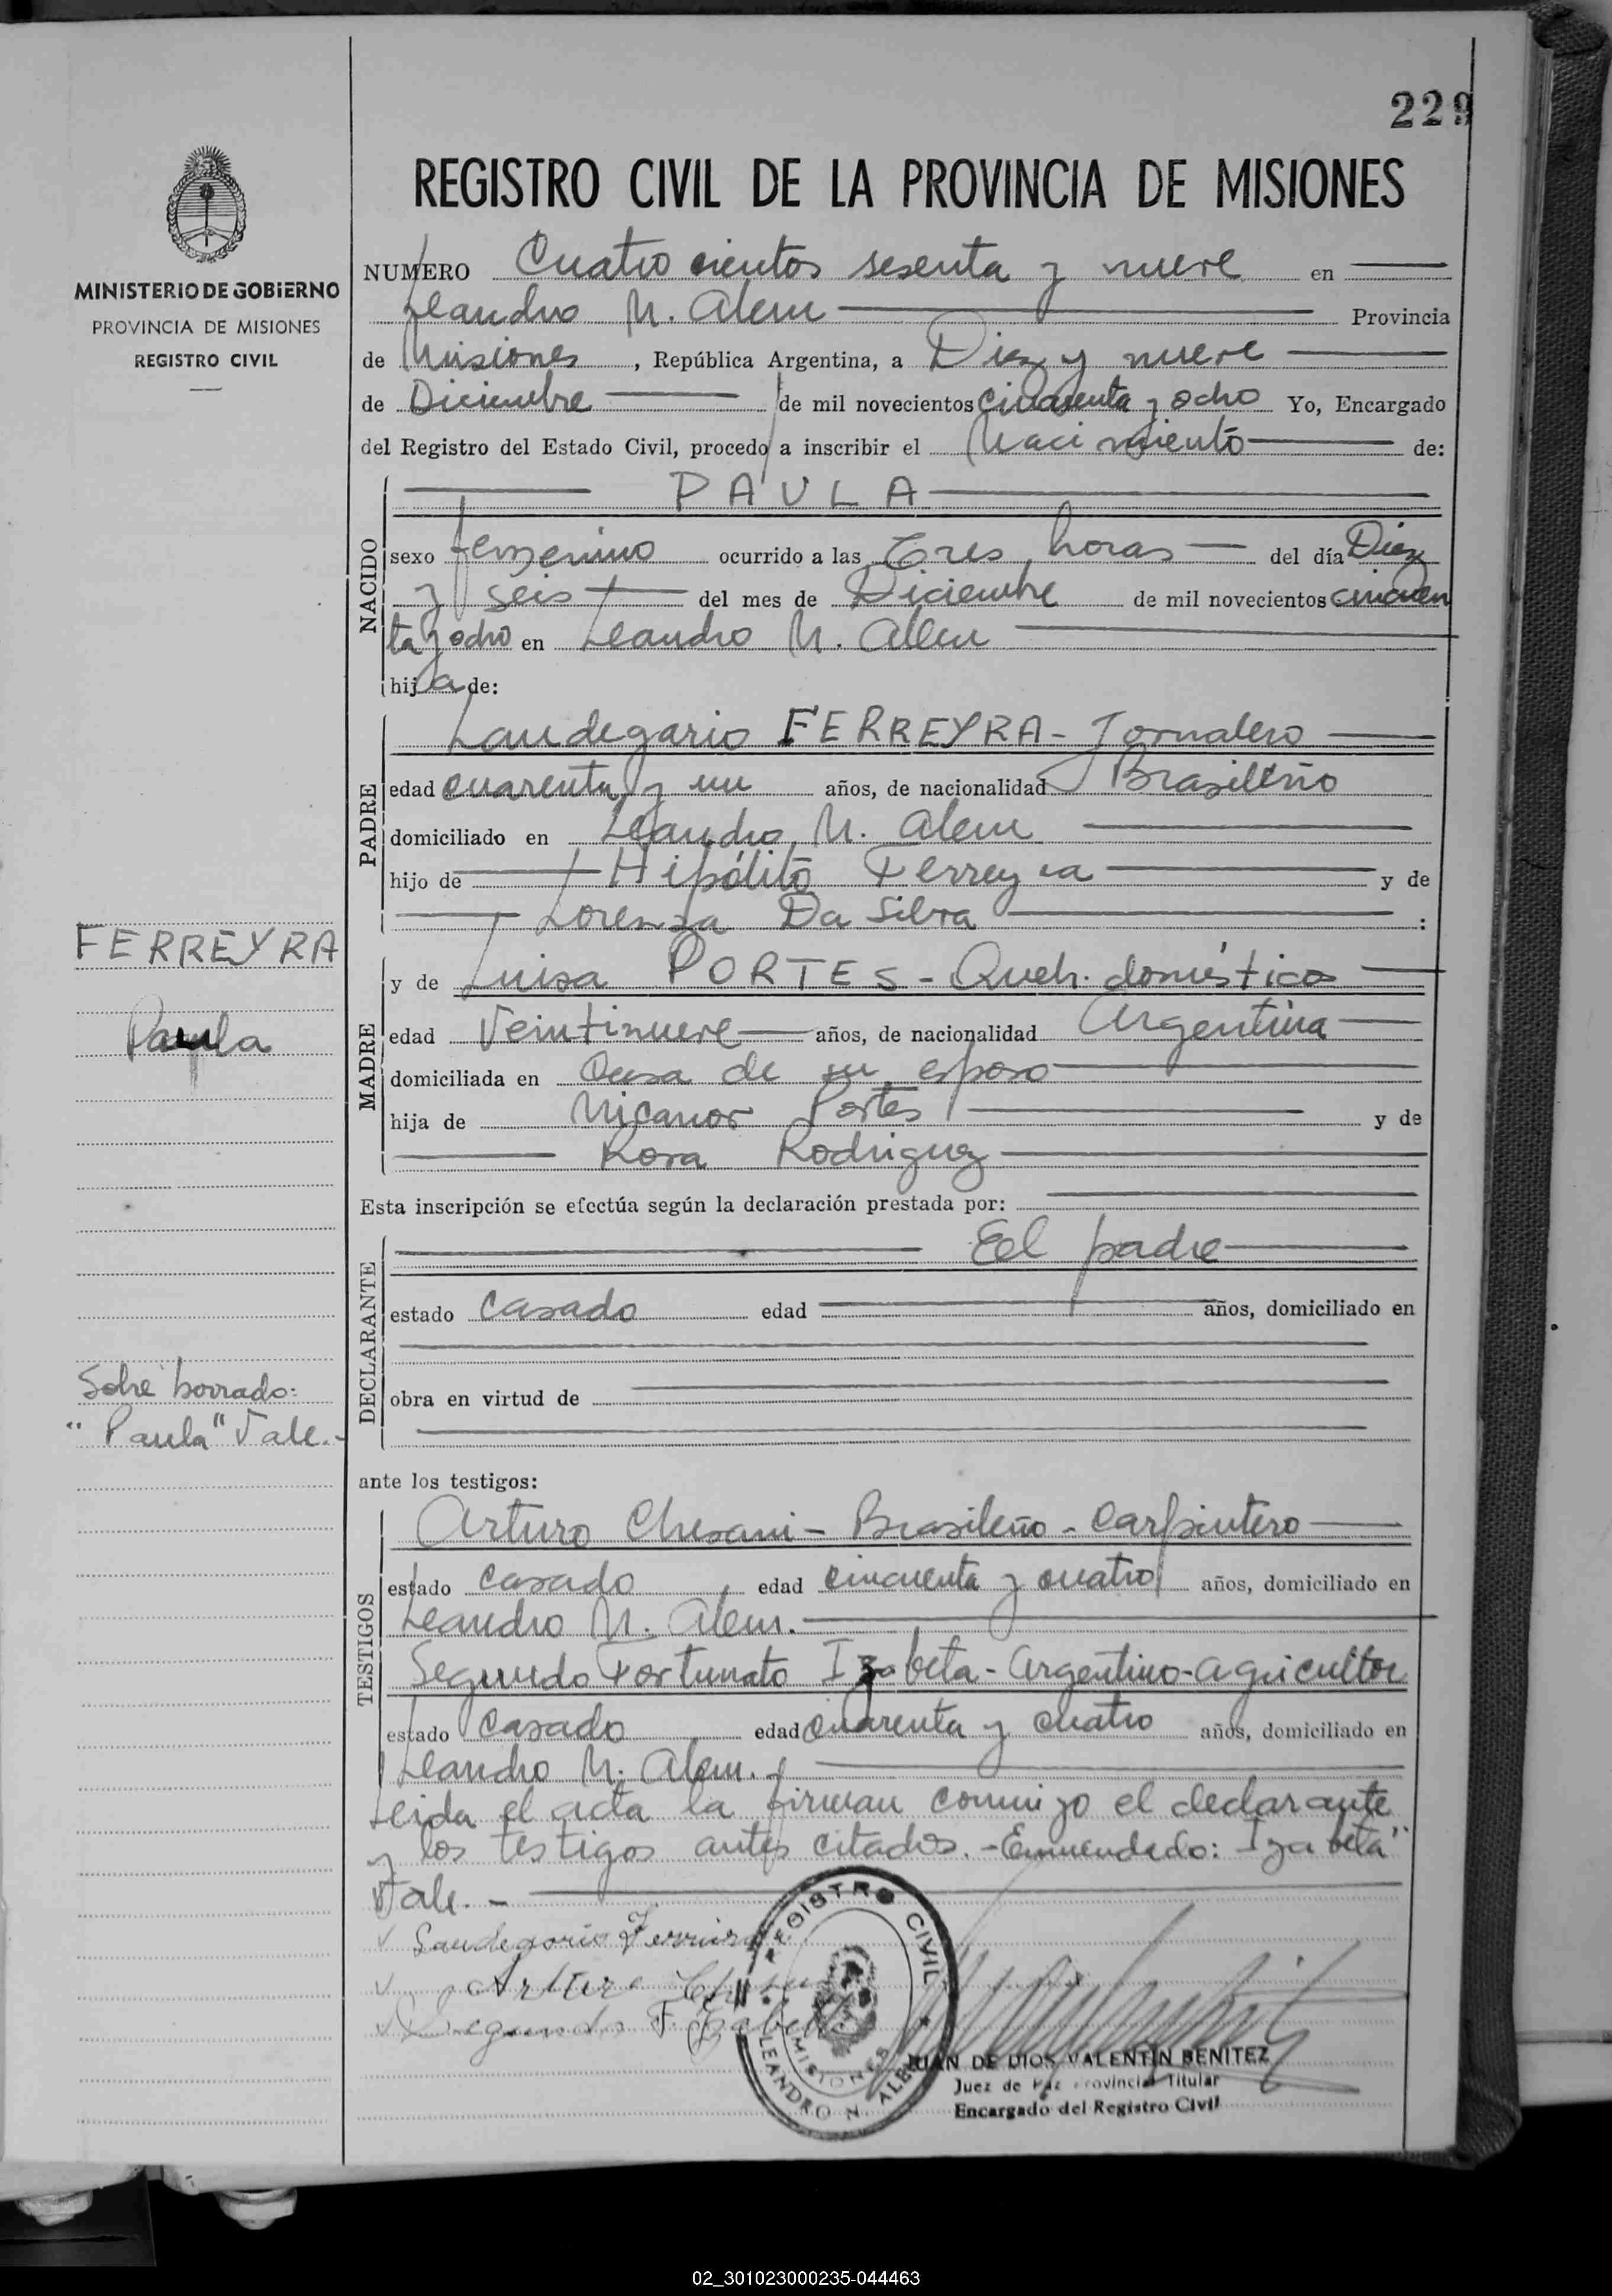 229
REGISTRO CIVIL DE LA PROVINCIA DE MISIONES
MINISTERIO DE GOBIERNO
PROVINCIA DE MISIONES
REGISTRO CIVIL
NUMERO Cuatrocientos sesenta y nueve en
Leandro N. Alem Provincia
de Misiones, República Argentina, a Diez y nueve
de Diciembre de mil novecientos cincuenta y ocho Yo, Encargado
del Registro del Estado Civil, procedo a inscribir el Nacimiento de:
PAULA
NACIDO
sexo femenino ocurrido a las Tres horas del día Diez
y seis del mes de Diciembre de mil novecientos cincuen
ta y ocho en Leandro N. Alem
hija de:
PADRE
Laudegario FERREYRA - Jornalero
edad cuarenta y un años, de nacionalidad Brasileño
domiciliado en Leandro N. Alem
hijo de Hipólito Ferreyra y de
Lorenza Da Silva :
FERREYRA
Paula
MADRE
y de Luisa PORTES - Queh. domésticos
edad Veintinueve años, de nacionalidad Argentina
domiciliada en Casa de su esposo
hija de Nicanor Portes y de
Rosa Rodriguez
Esta inscripción se efectúa según la declaración prestada por:
DECLARANTE
El padre
estado Casado edad años, domiciliado en
obra en virtud de
Sobre borrado:
"Paula" Vale.-
ante los testigos:
TESTIGOS
Arturo Chesani - Brasileño - Carpintero
estado Casado, edad cincuenta y cuatro años, domiciliado en
Leandro N. Alem.
Segundo Fortunato Izabeta - Argentino - agricultor
estado Casado edad cuarenta y cuatro años, domiciliado en
Leandro N. Alem.
Leida el acta la firman conmigo el declarante
y los testigos antes citados. - Enmendado: Izabeta"
Vale. -
Laudegario Ferreira
Arturo
Segundo F. Izabeta
REGISTRO CIVIL
MISIONES
LEANDRO N. ALEM
JUAN DE DIOS VALENTIN BENITEZ
Juez de Paz Provincial Titular
Encargado del Registro Civil
02_301023000235-044463